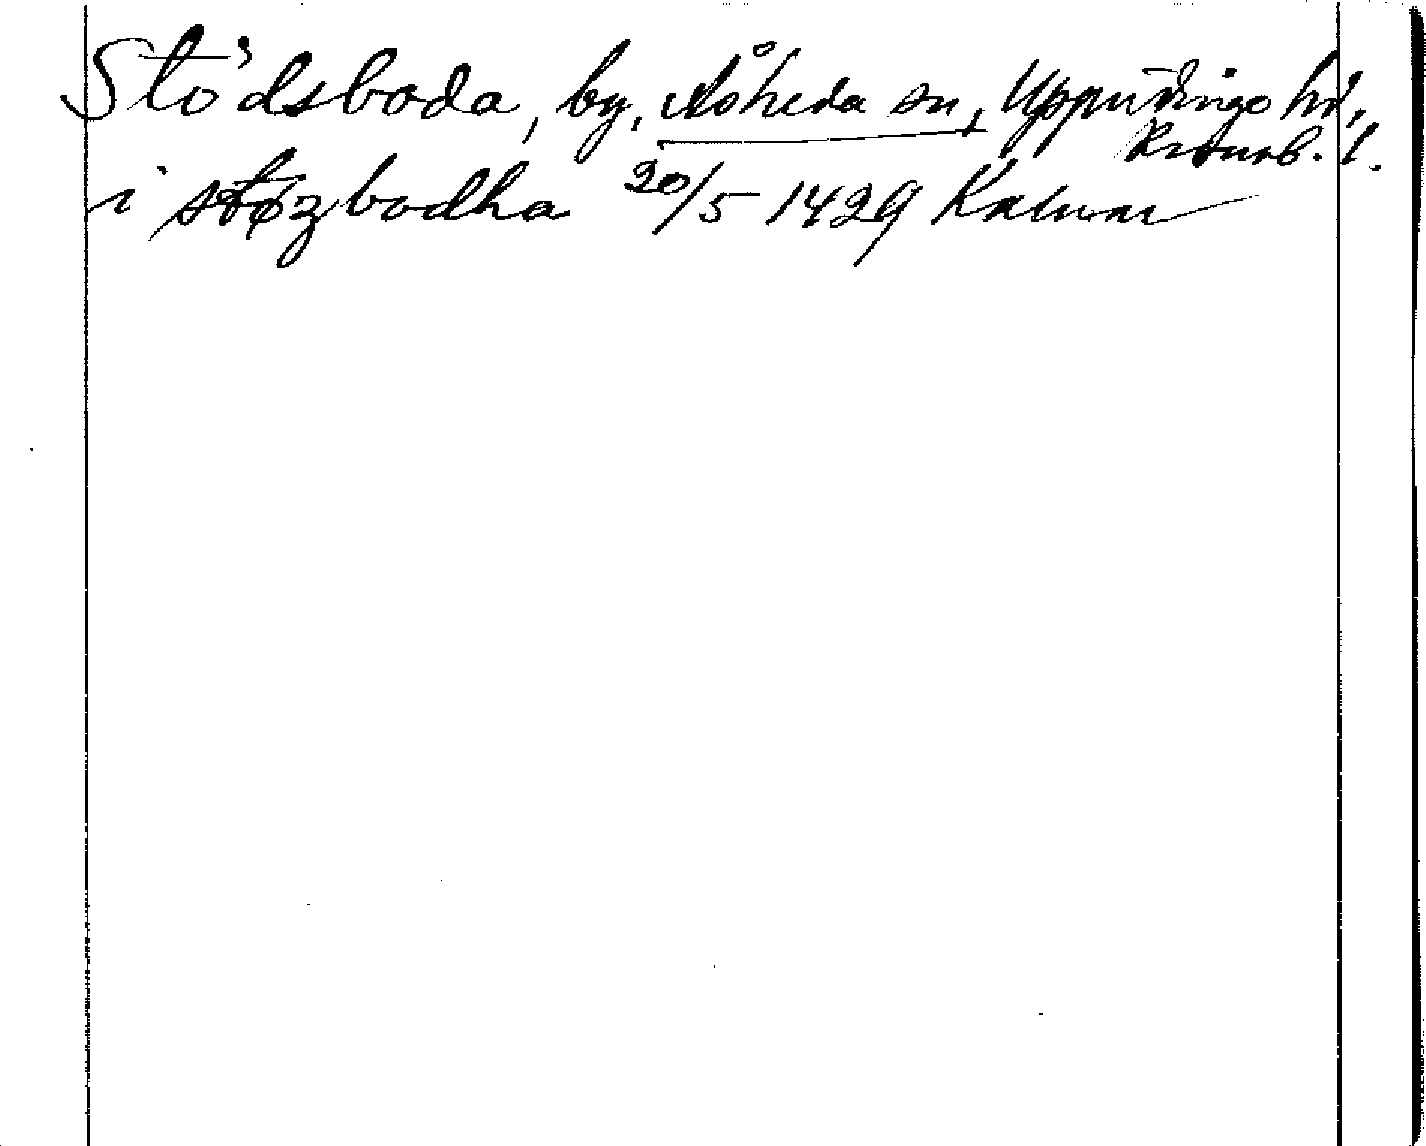 Stödsboda, by, Åsheda sn, Uppvidinge hd,
Kronob. l.
i støzbodha 20/5 1429 Kalmar